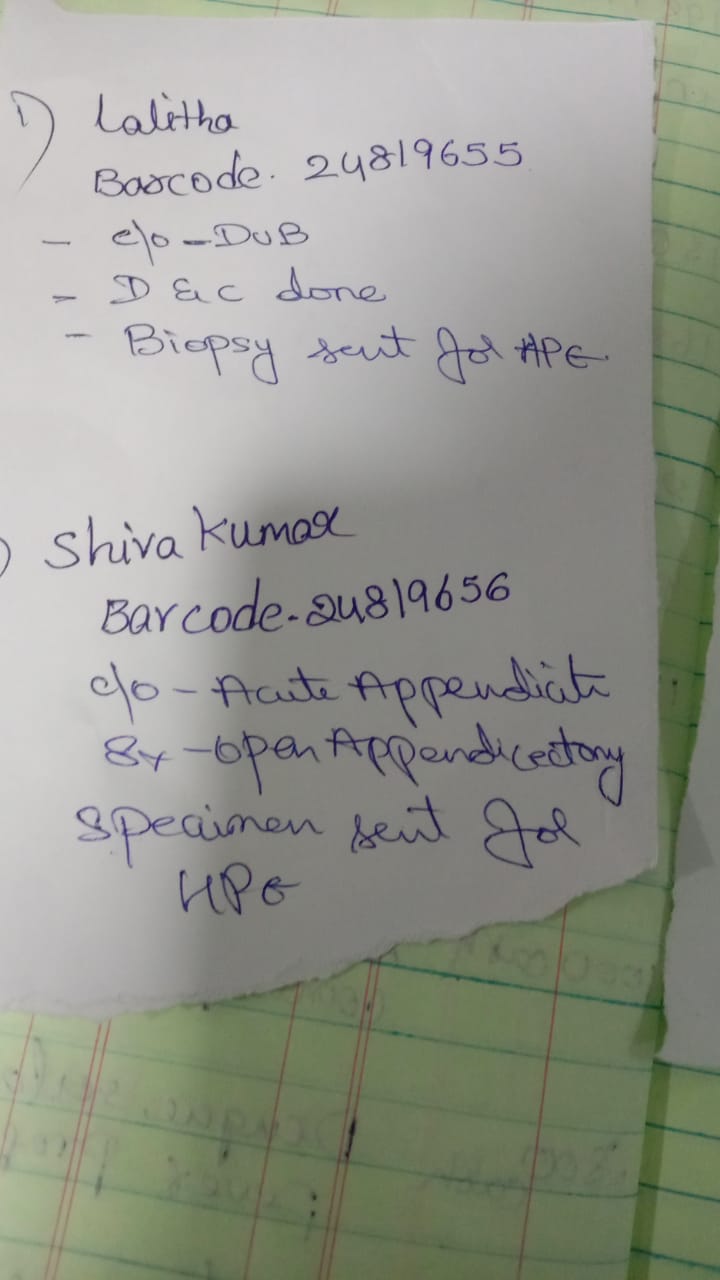 1) Lalitha
Barcode. 24819655
- c/o - DUB
- D &C done
- Biopsy sent for HPE.
) Shiva Kumar
Barcode-24819656
c/o - Acute Appendiciti
Sx - open Appendicectomy
Specimen sent for
HPE